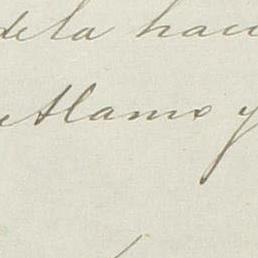 de la haci
Alamo y